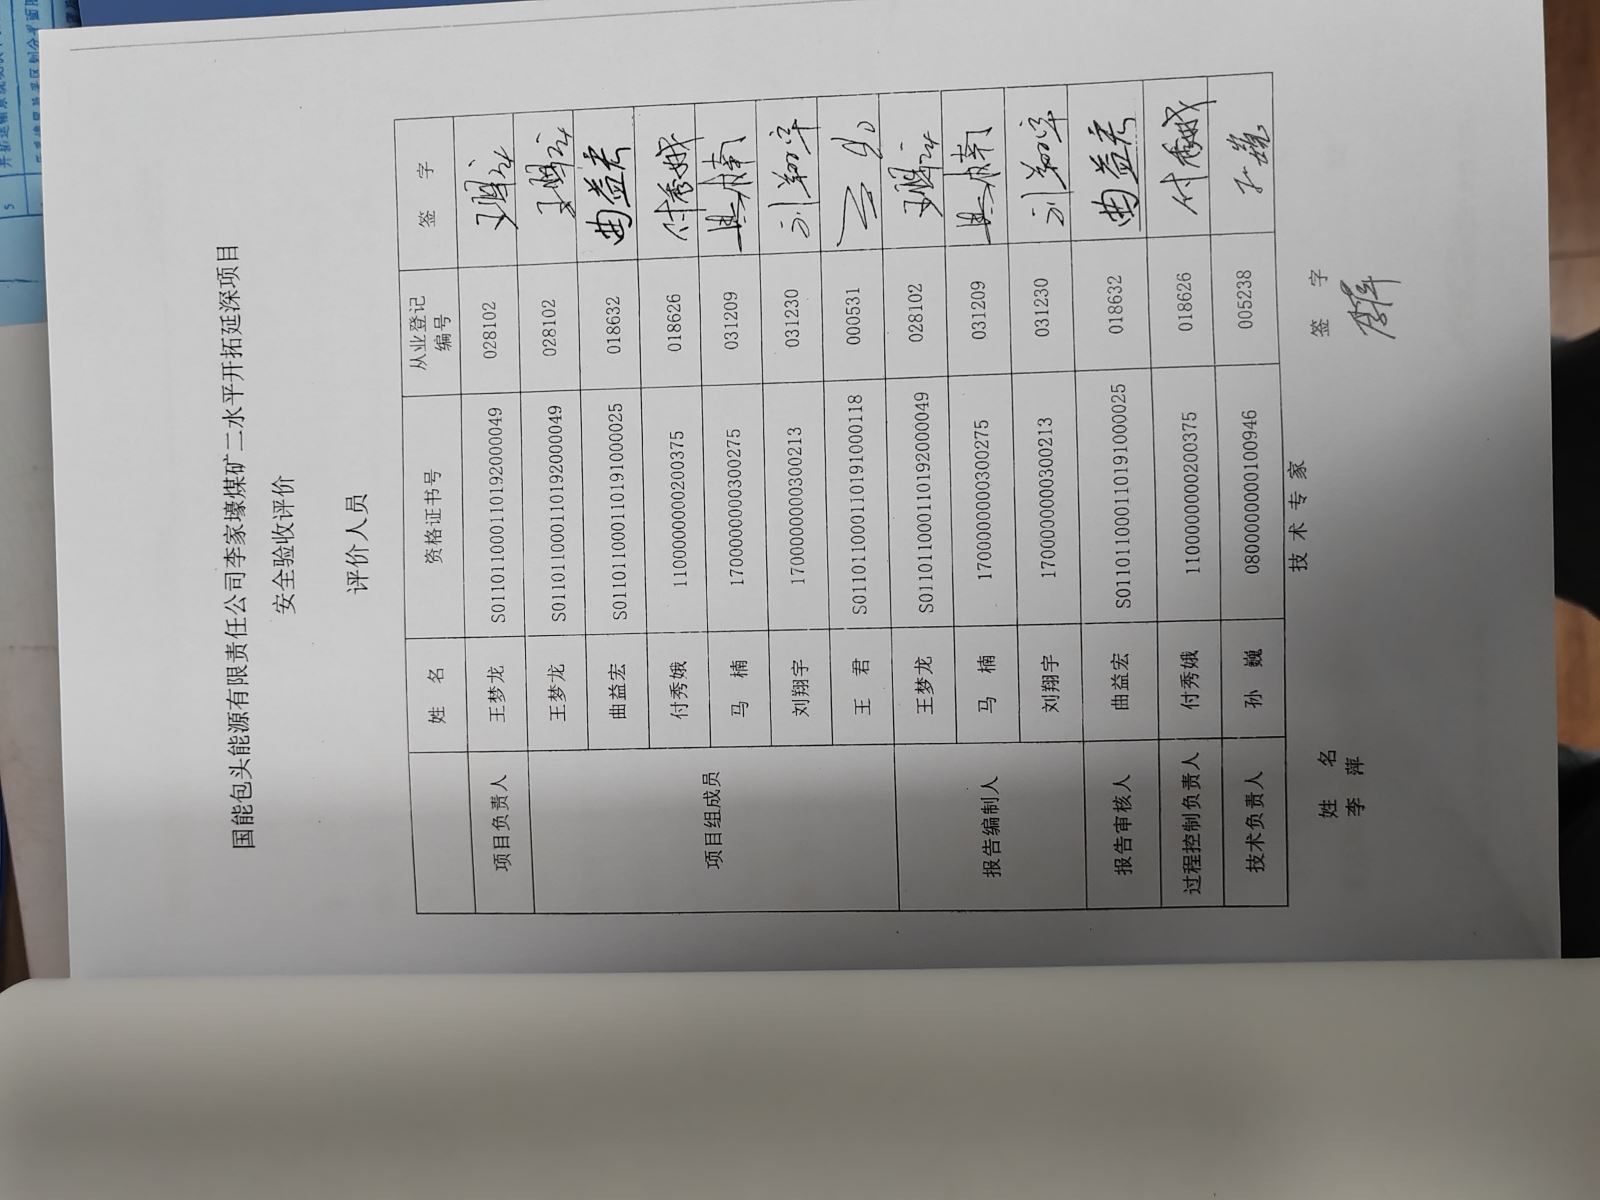 国能包头能源有限责任公司李家壕煤矿二水平开拓延深项目
安全验收评价
评价人员
姓 名 资格证书号 从业登记编号 签 字
项目负责人 王梦龙 S011011000110192000049 028102
项目组成员 王梦龙 S011011000110192000049 028102
曲益宏 S011011000110191000025 018632 曲益宏
付秀娥 1100000000200375 018626 付秀娥
马 楠 1700000000300275 031209 马楠
刘翔宇 1700000000300213 031230 刘翔宇
王 君 S011011000110191000118 000531
报告编制人 王梦龙 S011011000110192000049 028102
马 楠 1700000000300275 031209 马楠
刘翔宇 1700000000300213 031230 刘翔宇
报告审核人 曲益宏 S011011000110191000025 018632 曲益宏
过程控制负责人 付秀娥 1100000000200375 018626 付秀娥
技术负责人 孙 巍 0800000000100946 005238 孙巍
技 术 专 家
姓 名 签 字
李 萍 李萍